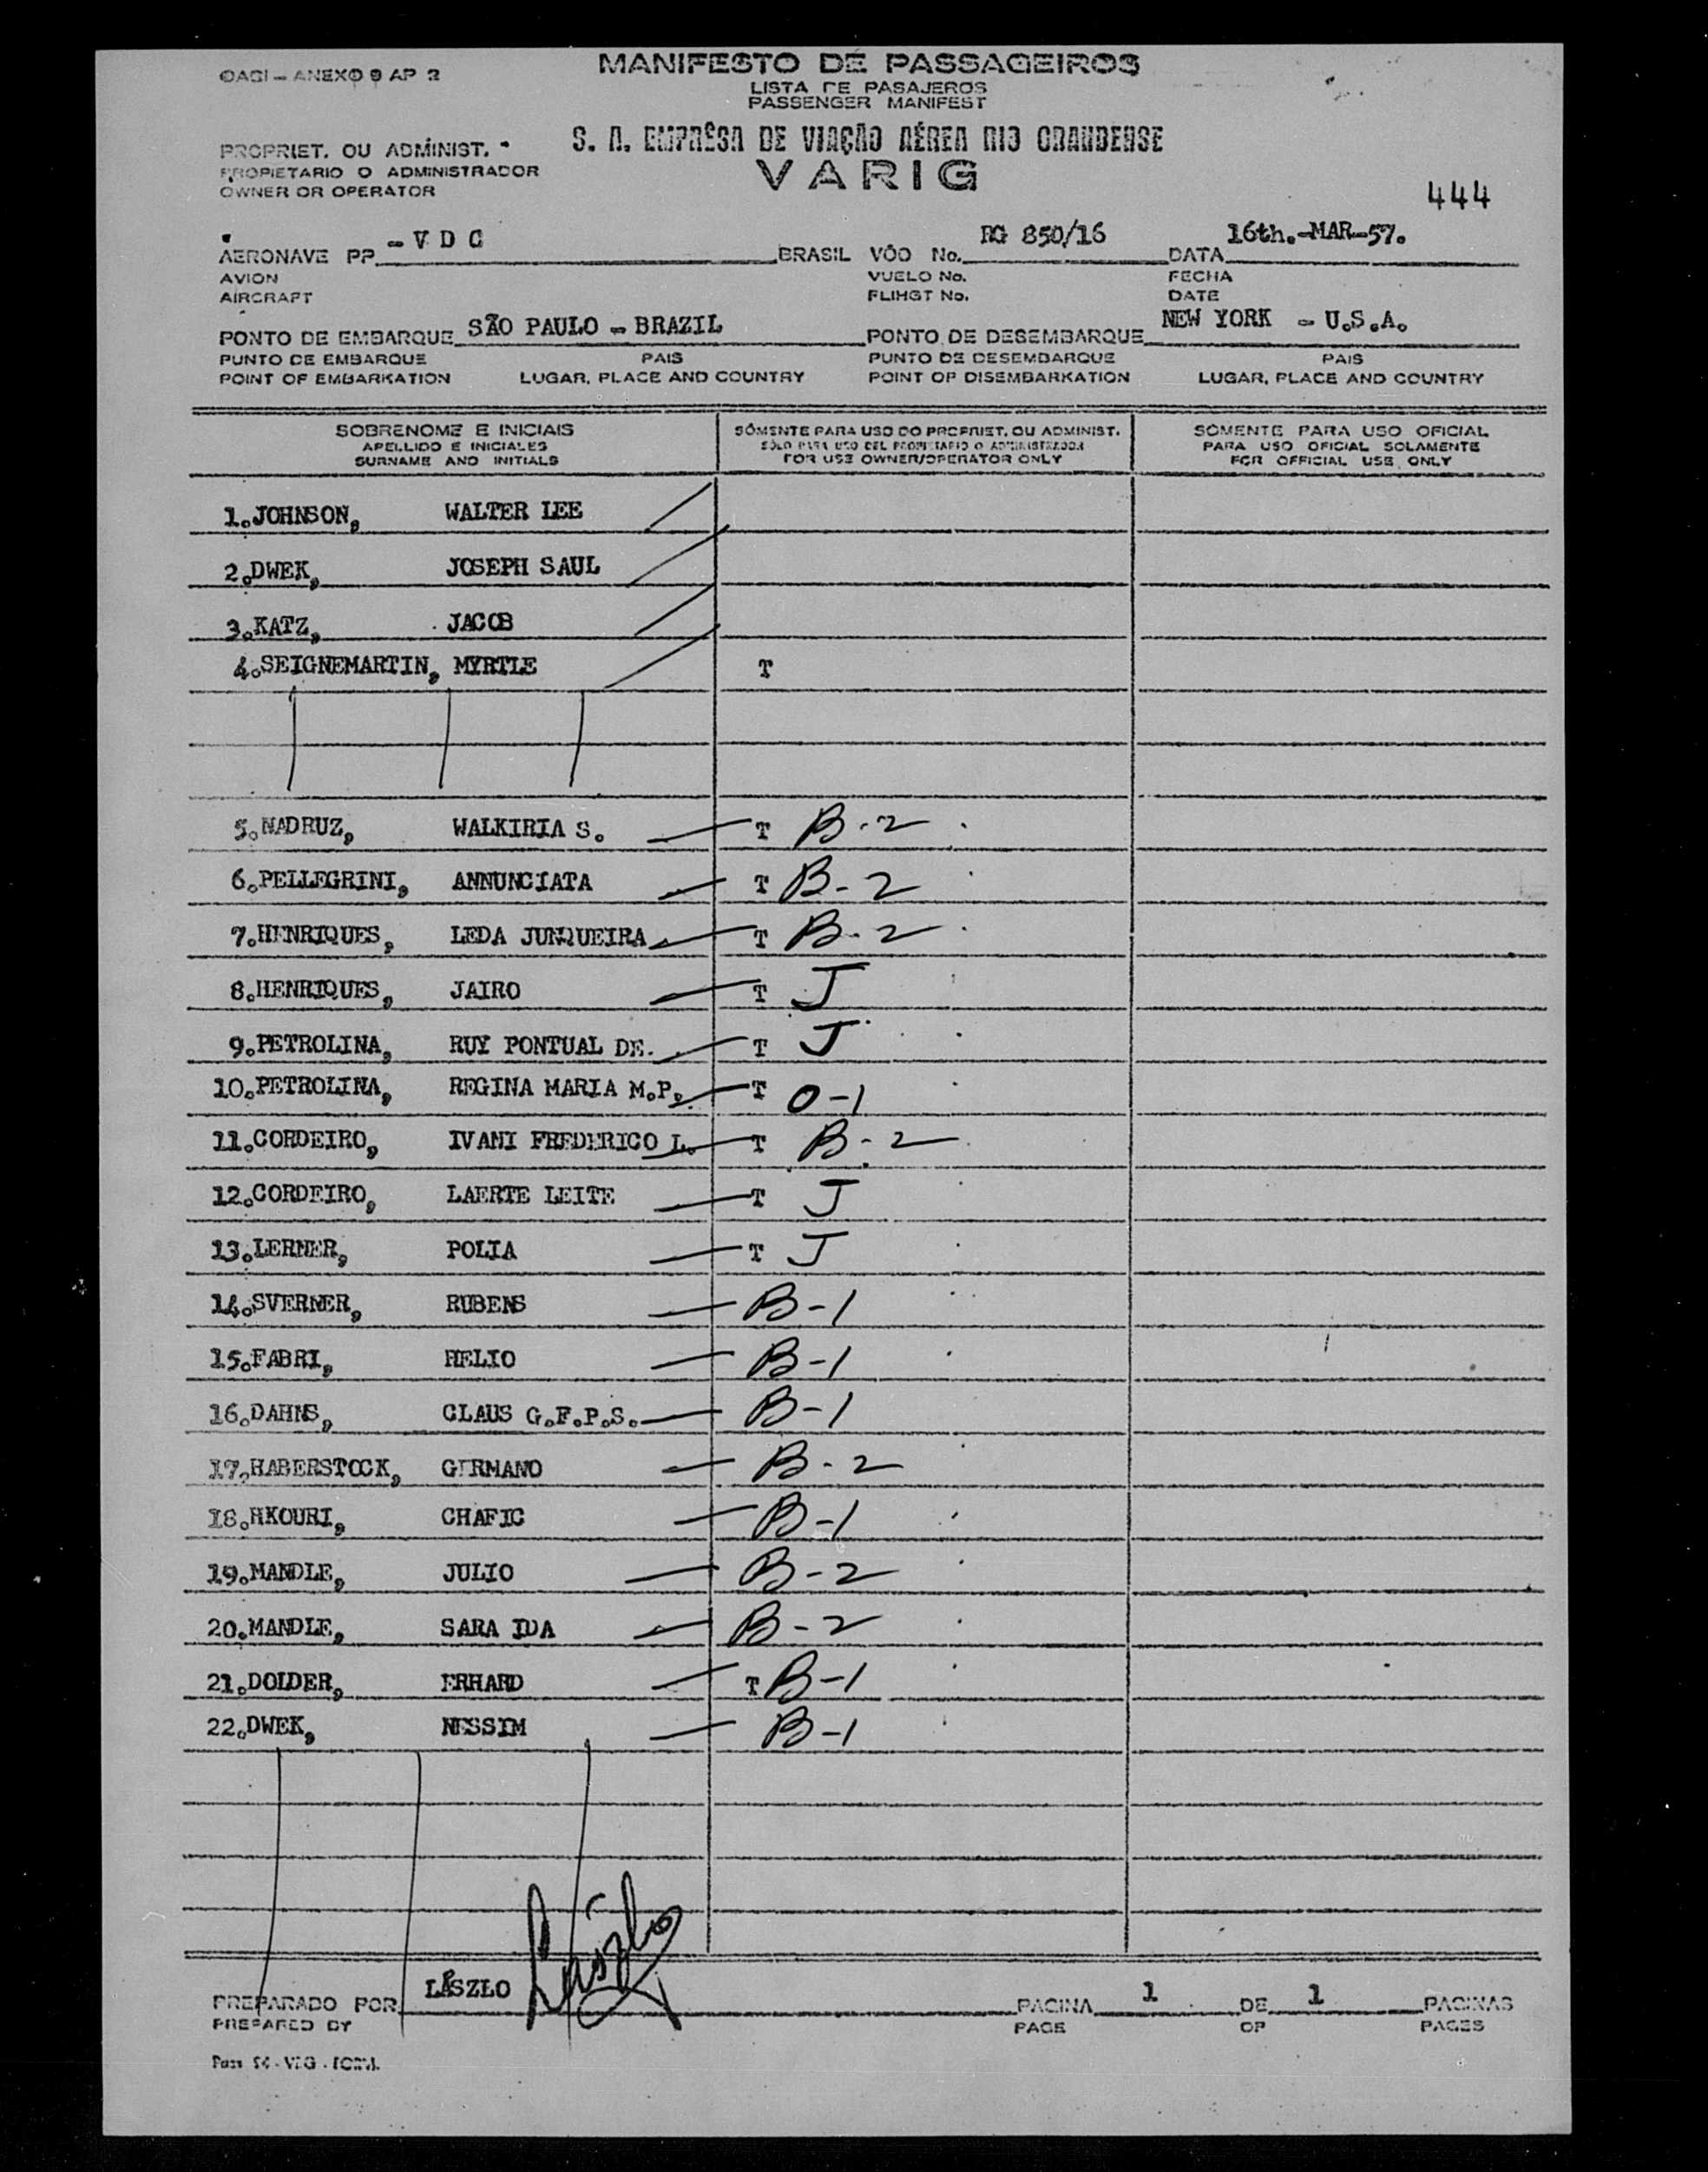 OACI - ANEXO 9 AP 2
MANIFESTO DE PASSAGEIROS
LISTA DE PASAJEROS
PASSENGER MANIFEST
S. A. EMPRÊSA DE VIAÇÃO AÉREA RIO GRANDENSE
VARIG
PROPRIET. OU ADMINIST.
PROPIETARIO O ADMINISTRADOR
OWNER OR OPERATOR
444
AERONAVE PP -V D C BRASIL VÔO No. RG 850/16 DATA 16th.-MAR-57.
AVION VUELO No. FECHA
AIRCRAFT FLIHGT No. DATE
PONTO DE EMBARQUE SÃO PAULO - BRAZIL PONTO DE DESEMBARQUE NEW YORK - U.S.A.
PUNTO DE EMBARQUE PAIS PUNTO DE DESEMBARQUE PAIS
POINT OF EMBARKATION LUGAR, PLACE AND COUNTRY POINT OF DISEMBARKATION LUGAR, PLACE AND COUNTRY
SOBRENOME E INICIAIS SÓMENTE PARA USO DO PROPRIET. OU ADMINIST. SOMENTE PARA USO OFICIAL
APELLIDO E INICIALES SÓLO PARA USO DEL PROPIETARIO O ADMINISTRADOR PARA USO OFICIAL SOLAMENTE
SURNAME AND INITIALS FOR USE OWNER/OPERATOR ONLY FOR OFFICIAL USE ONLY
1.JOHNSON, WALTER LEE
2.DWEK, JOSEPH SAUL
3.KATZ, JACOB
4.SEIGNEMARTIN, MYRTLE T
5.NADRUZ, WALKIRIA S. T B-2
6.PELLEGRINI, ANNUNCIATA T B-2
7.HENRIQUES, LEDA JUNQUEIRA T B-2
8.HENRIQUES, JAIRO T J
9.PETROLINA, RUY PONTUAL DE. T J
10.PETROLINA, REGINA MARIA M.P. T O-1
11.CORDEIRO, IVANI FREDERICO L. T B-2
12.CORDEIRO, LAERTE LEITE T J
13.LERNER, POLIA T J
14.SVERNER, RUBENS B-1
15.FABRI, HELIO B-1
16.DAHNS, CLAUS G.F.P.S. B-1
17.HABERSTOCK, GERMANO B-2
18.HKOURI, CHAFIC B-1
19.MANDLE, JULIO B-2
20.MANDLE, SARA IDA B-2
21.DOLDER, ERHARD T B-1
22.DWEK, NESSIM B-1
PREPARADO POR LÁSZLO László PAGINA 1 DE 1 PAGINAS
PREPARED BY PAGE OF PAGES